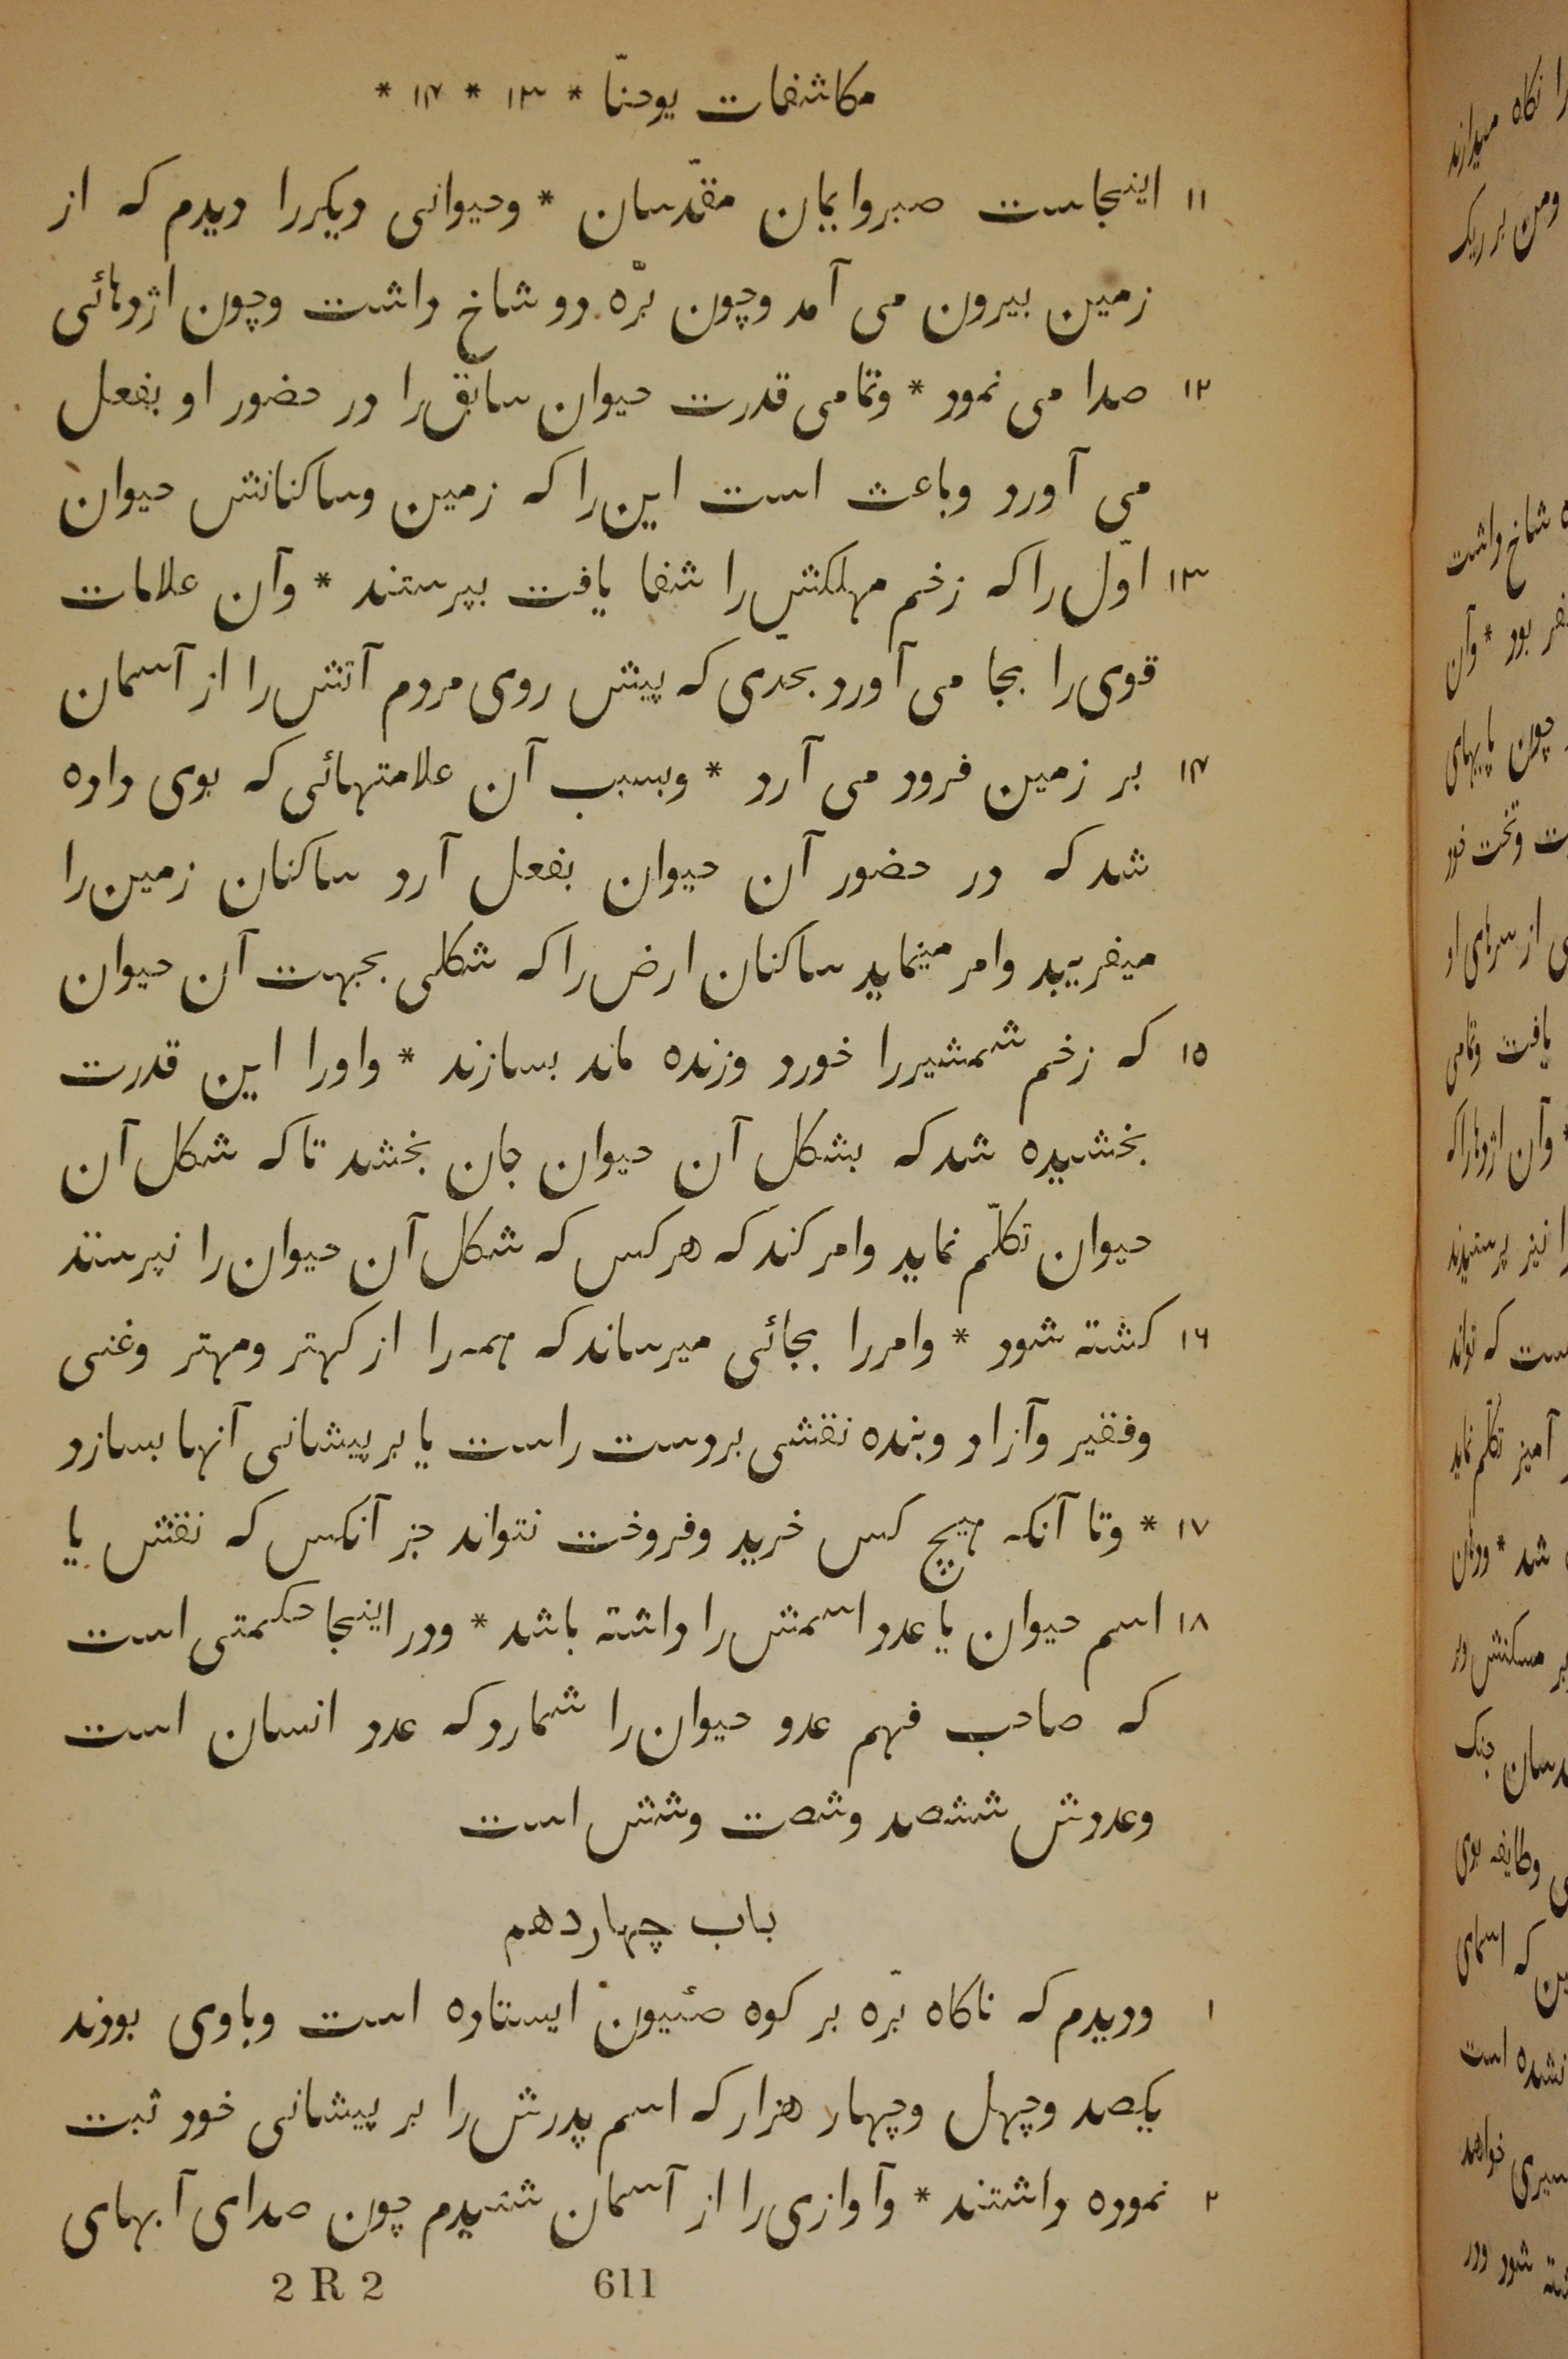 مکاشفات یوحنّا * ۱۳ * ۱۴ *
۱۱ اینجاست صبر وایمان مقدّسان * وحیوانی دیکررا دیدم که از
زمین بیرون می آمد وچون برّه دو شاخ داشت وچون اژدهائی
۱۲ صدا می نمود * وتمامی قدرت حیوان سابق را در حضور او بفعل
می آورد وباعث است این را که زمین وساکنانش حیوان
۱۳ اوّل را که زخم مهلکش را شفا یافت بپرستند * وآن علامات
قوی را بجا می آورد بحدّی که پیش روی مردم آتش را از آسمان
۱۴ بر زمین فرود می آرد * وبسبب آن علامتهائی که بوی داده
شد که در حضور آن حیوان بفعل آرد ساکنان زمین را
میفریبد وامر مینماید ساکنان ارض را که شکلی بجهت آن حیوان
۱۵ که زخم شمشیررا خورد وزنده ماند بسازند * واورا این قدرت
بخشیده شد که بشکل آن حیوان جان بخشد تا که شکل آن
حیوان تکلّم نماید وامر کند که هر کس که شکل آن حیوان را نپرستد
۱۶ کشته شود * وامررا بجائی میرساند که همه را از کهتر ومهتر وغنی
وفقیر وآزاد وبنده نقشی بر دست راست یا بر پیشانی آنها بسازد
۱۷ * وتا آنکه هیچ کس خرید وفروخت نتواند جز آنکس که نقش یا
۱۸ اسم حیوان یا عدد اسمش را داشته باشد * ودر اینجا حکمتی است
که صاحب فهم عدد حیوان را شمارد که عدد انسان است
وعددش ششصد وشصت وشش است
باب چهاردهم
۱ ودیدم که ناکاه برّه بر کوه صئیون ایستاده است وباوی بودند
یکصد وچهل وچهار هزار که اسم پدرش را بر پیشانی خود ثبت
۲ نموده داشتند * وآوازی را از آسمان شنیدم چون صدای آبهای
611 2 R 2
را نکاه میدارند
ومن بر ریک
شاخ داشت
بود * وآن
چون پایهای
وتخت خود
از سرهای او
یافت وتمامی
وآن اژدهارا که
را نیز پرستیدند
که تواند
آمیز تکلّم نماید
شد * ودهان
بر مسکنش وبر
جنک
وطایفه بوی
که اسمای
نشده است
خواهد
شود ودر